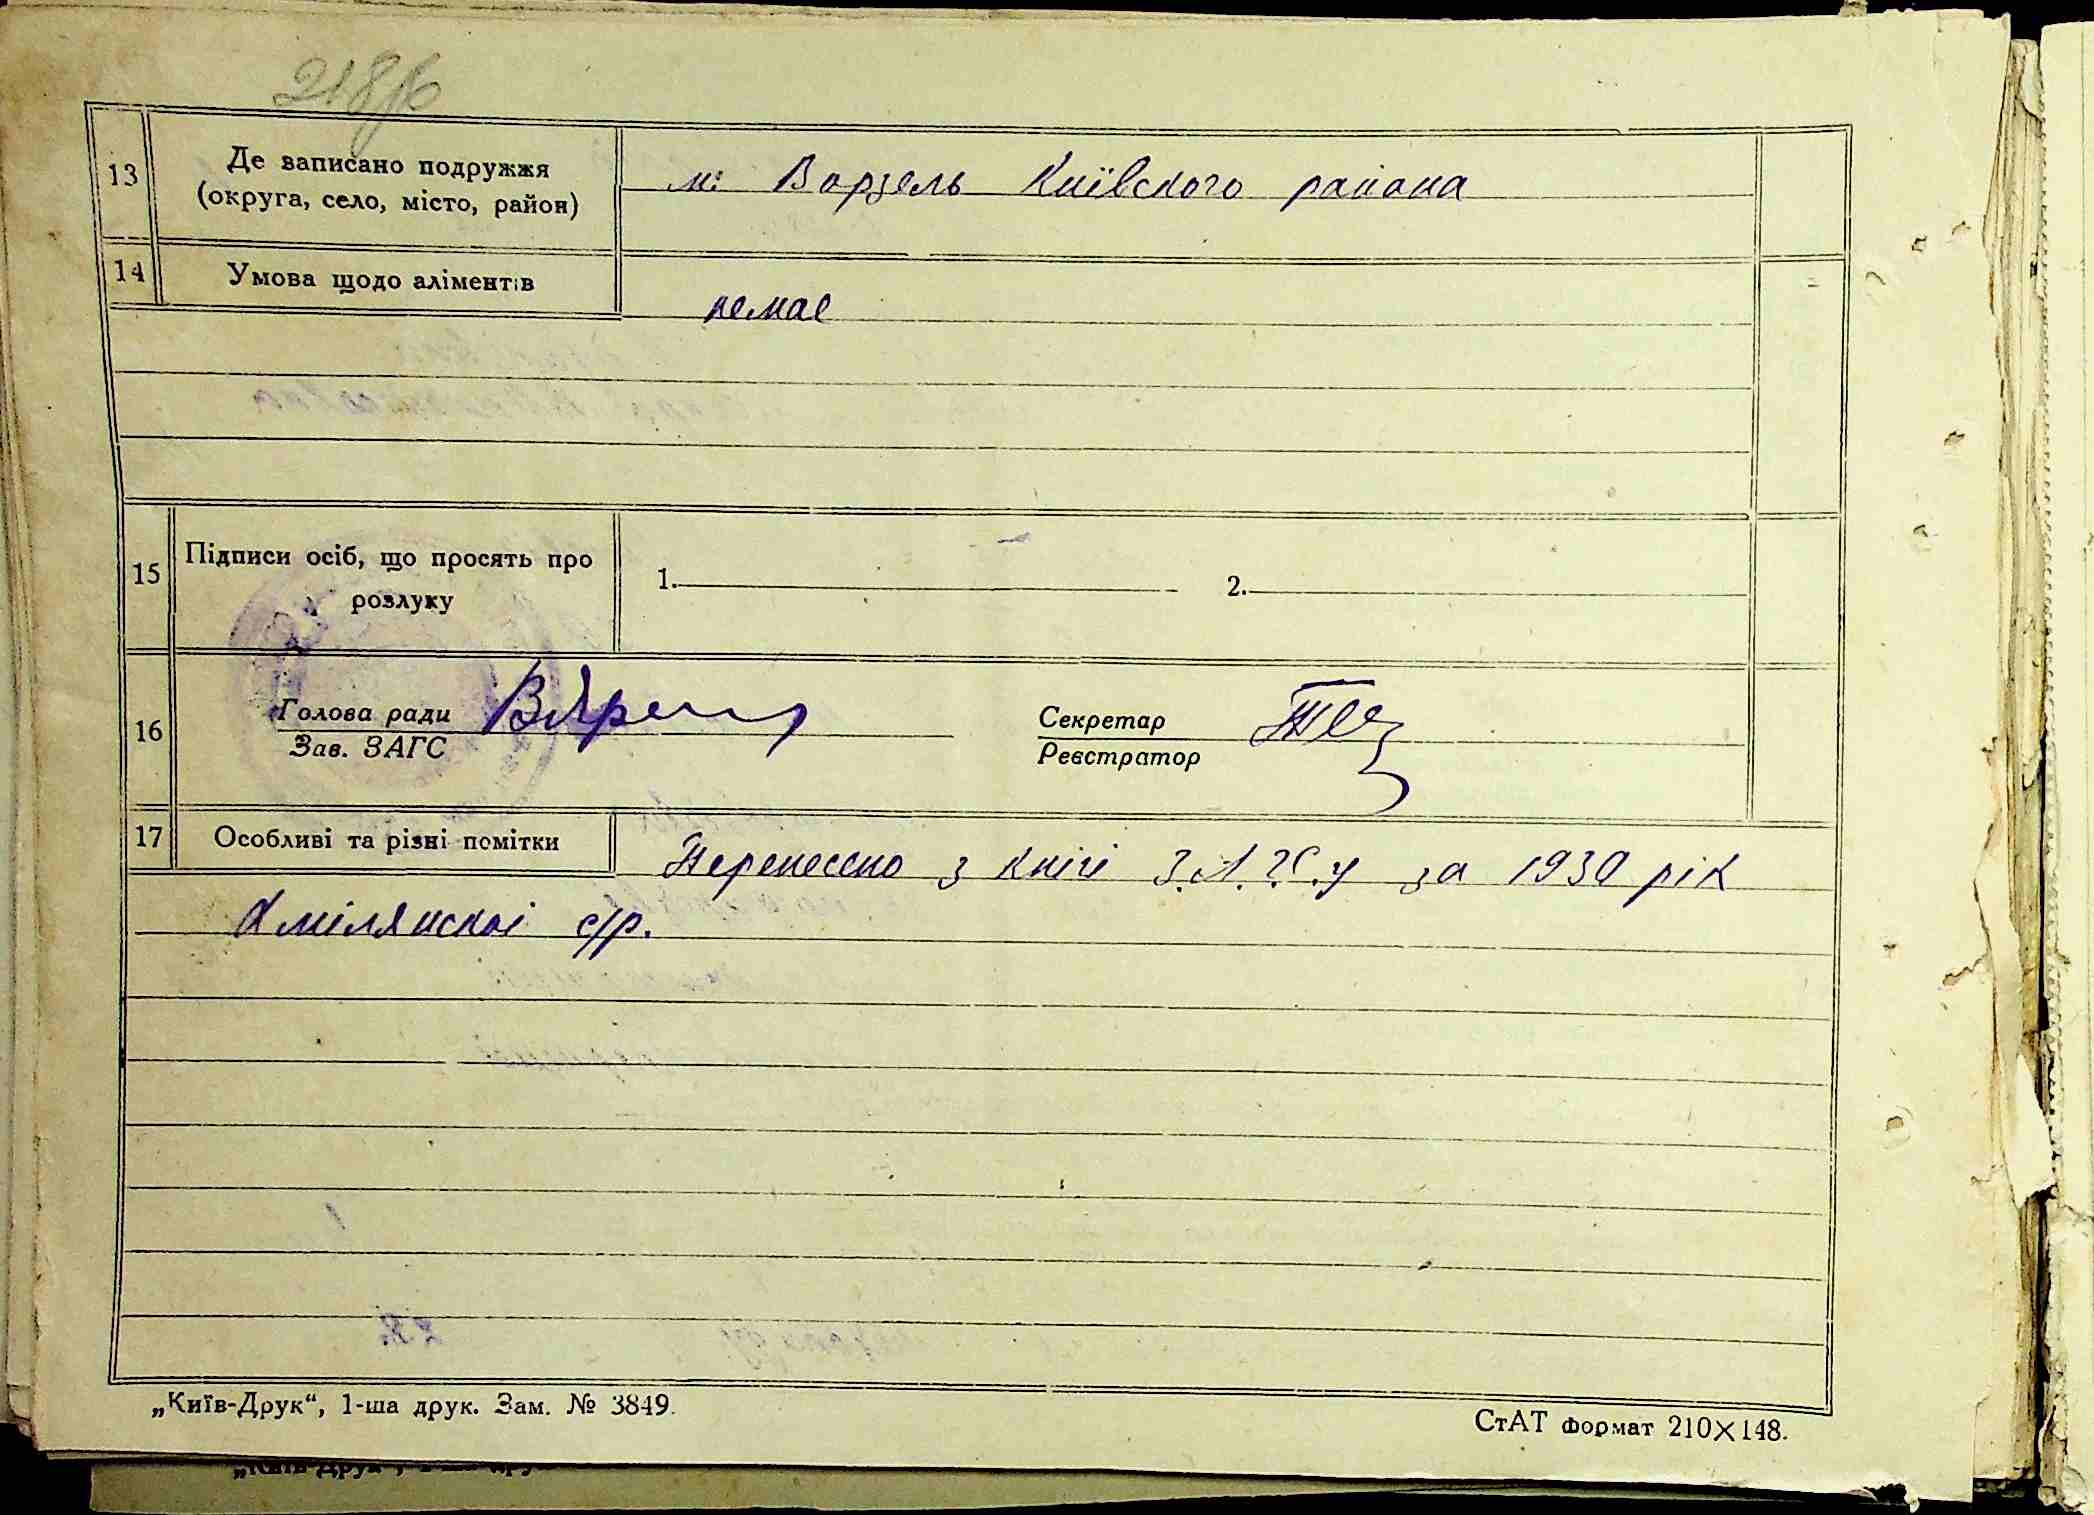 218
13
Де записано подружжя
(округа, село, місто, район)
м: Ворзель Київского района
14
Умова щодо аліментів
немає
15
Підписи осіб, що просять про
розлуку
1.
2.
16
Голова ради
Зав. ЗАГС
Секретар
Реєстратор
17
Особливі та різні помітки
Перенесено з книгі З.А.Г.С.у за 1930 рік
Хмілянскоі с/р.
„Київ-Друк“, 1-ша друк. Зам. № 3849.
СтАТ формат 210×148.